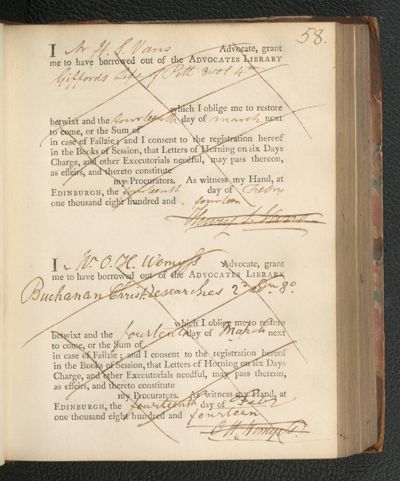 58.
I Mr H. S. Vans Advocate, grant
me to have borrowed out of the ADVOCATES LIBRARY
Giffords Life of Pitt 3 vol 4to
which I oblige me to restore
betwixt and the fourteenth day of march next
to come, or the Sum of
in case of Failzie; and I consent to the registration hereof
in the Books of Session, that Letters of Horning on six Days
Charge, and other Executorials needful, may pass thereon,
as effeirs, and thereto constitute
my Procurators. As witness my Hand, at
EDINBURGH, the fourteenth day of Febry
one thousand eight hundred and fourteen
I Mr O. H. Wemyss Advocate, grant
me to have borrowed out of the ADVOCATES LIBRARY
Buchanan Researches 8o
which I oblige me to restore
betwixt and the fourteenth day of March next
to come, or the Sum of
in case of Failzie; and I consent to the registration hereof
in the Books of Session, that Letters of Horning on six Days
Charge, and other Executorials needful, may pass thereon,
as effeirs, and thereto constitute
my Procurators. As witness my Hand, at
EDINBURGH, the fourteenth day of Febr
one thousand eight hundred and fourteen
O H Wemyss.